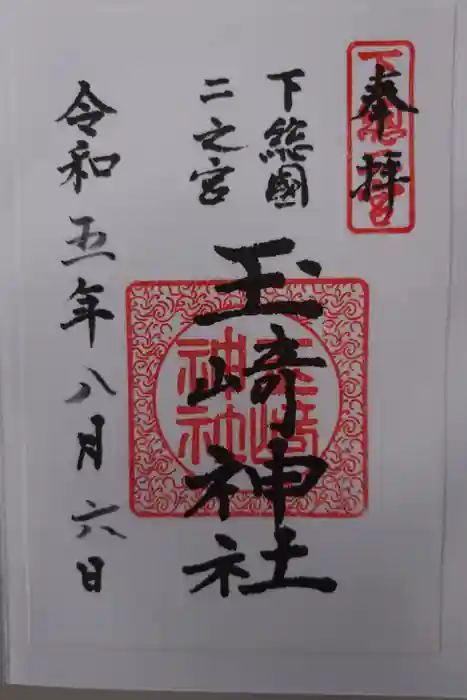 奉拝
下総国二宮
下総國
二之宮
玉崎神社
玉崎神社
令和五年八月六日